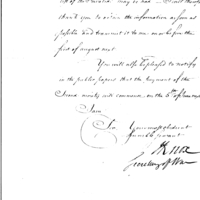 thank you to obtain the information as soon as
possible and transmit it to me on or before the
first of august next
You will also be pleased to notify
in the public papers that the payment of the
Invalids will commence on the 5th of
I am
Sir
Your most obedient
humble servant
H Knox
Secretary of War